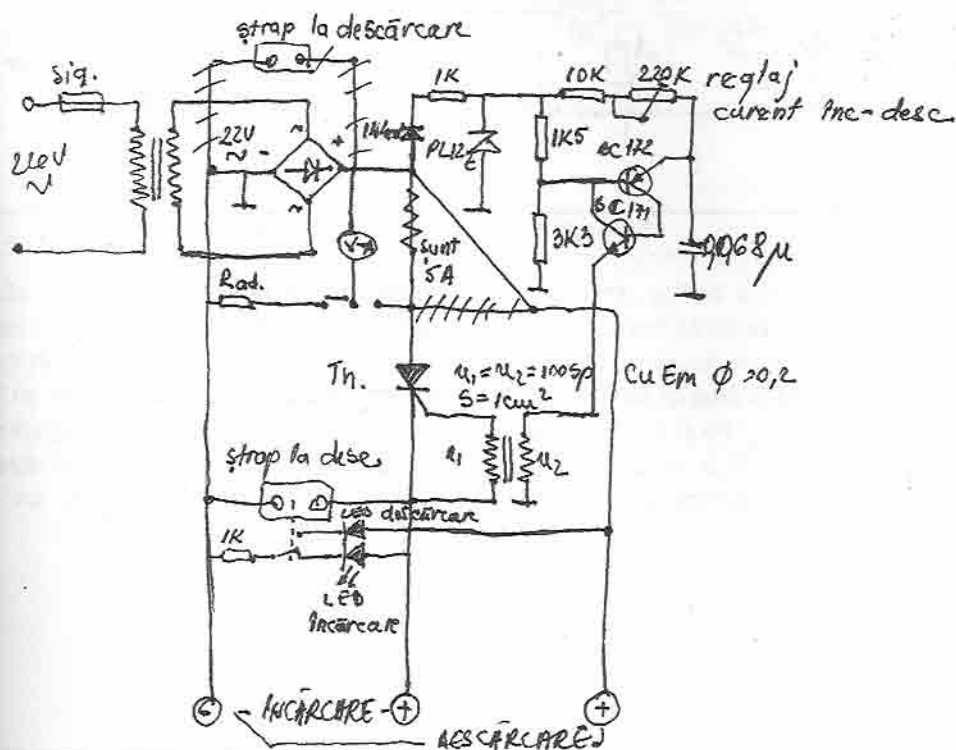 ștrap la descărcare
Sig.
1K
10K
220K
reglaj
curent înc-desc.
220V
~
22V
~
-
~
+
~
PL12
1K5
BC 172
BC 171
3K3
0,068µ
V-A
șunt
5A
Rad.
Th.
u₁ = u₂ = 100sp
S = 1cm²
CuEm Ø 0,2
u₁
u₂
ștrap la desc.
LED descărcare
1K
LED
încărcare
- ÎNCĂRCARE -
+
+
DESCĂRCARE